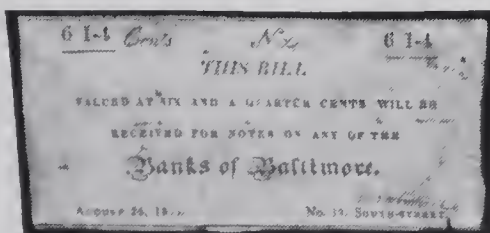 6 1-4 Cents No. 6 1-4
THIS BILL
VALUED AT SIX AND A QUARTER CENTS WILL BE
RECEIVED FOR NOTES ON ANY OF THE
Banks of Baltimore.
AUGUST 26, No. 12, SOUTH-STREET